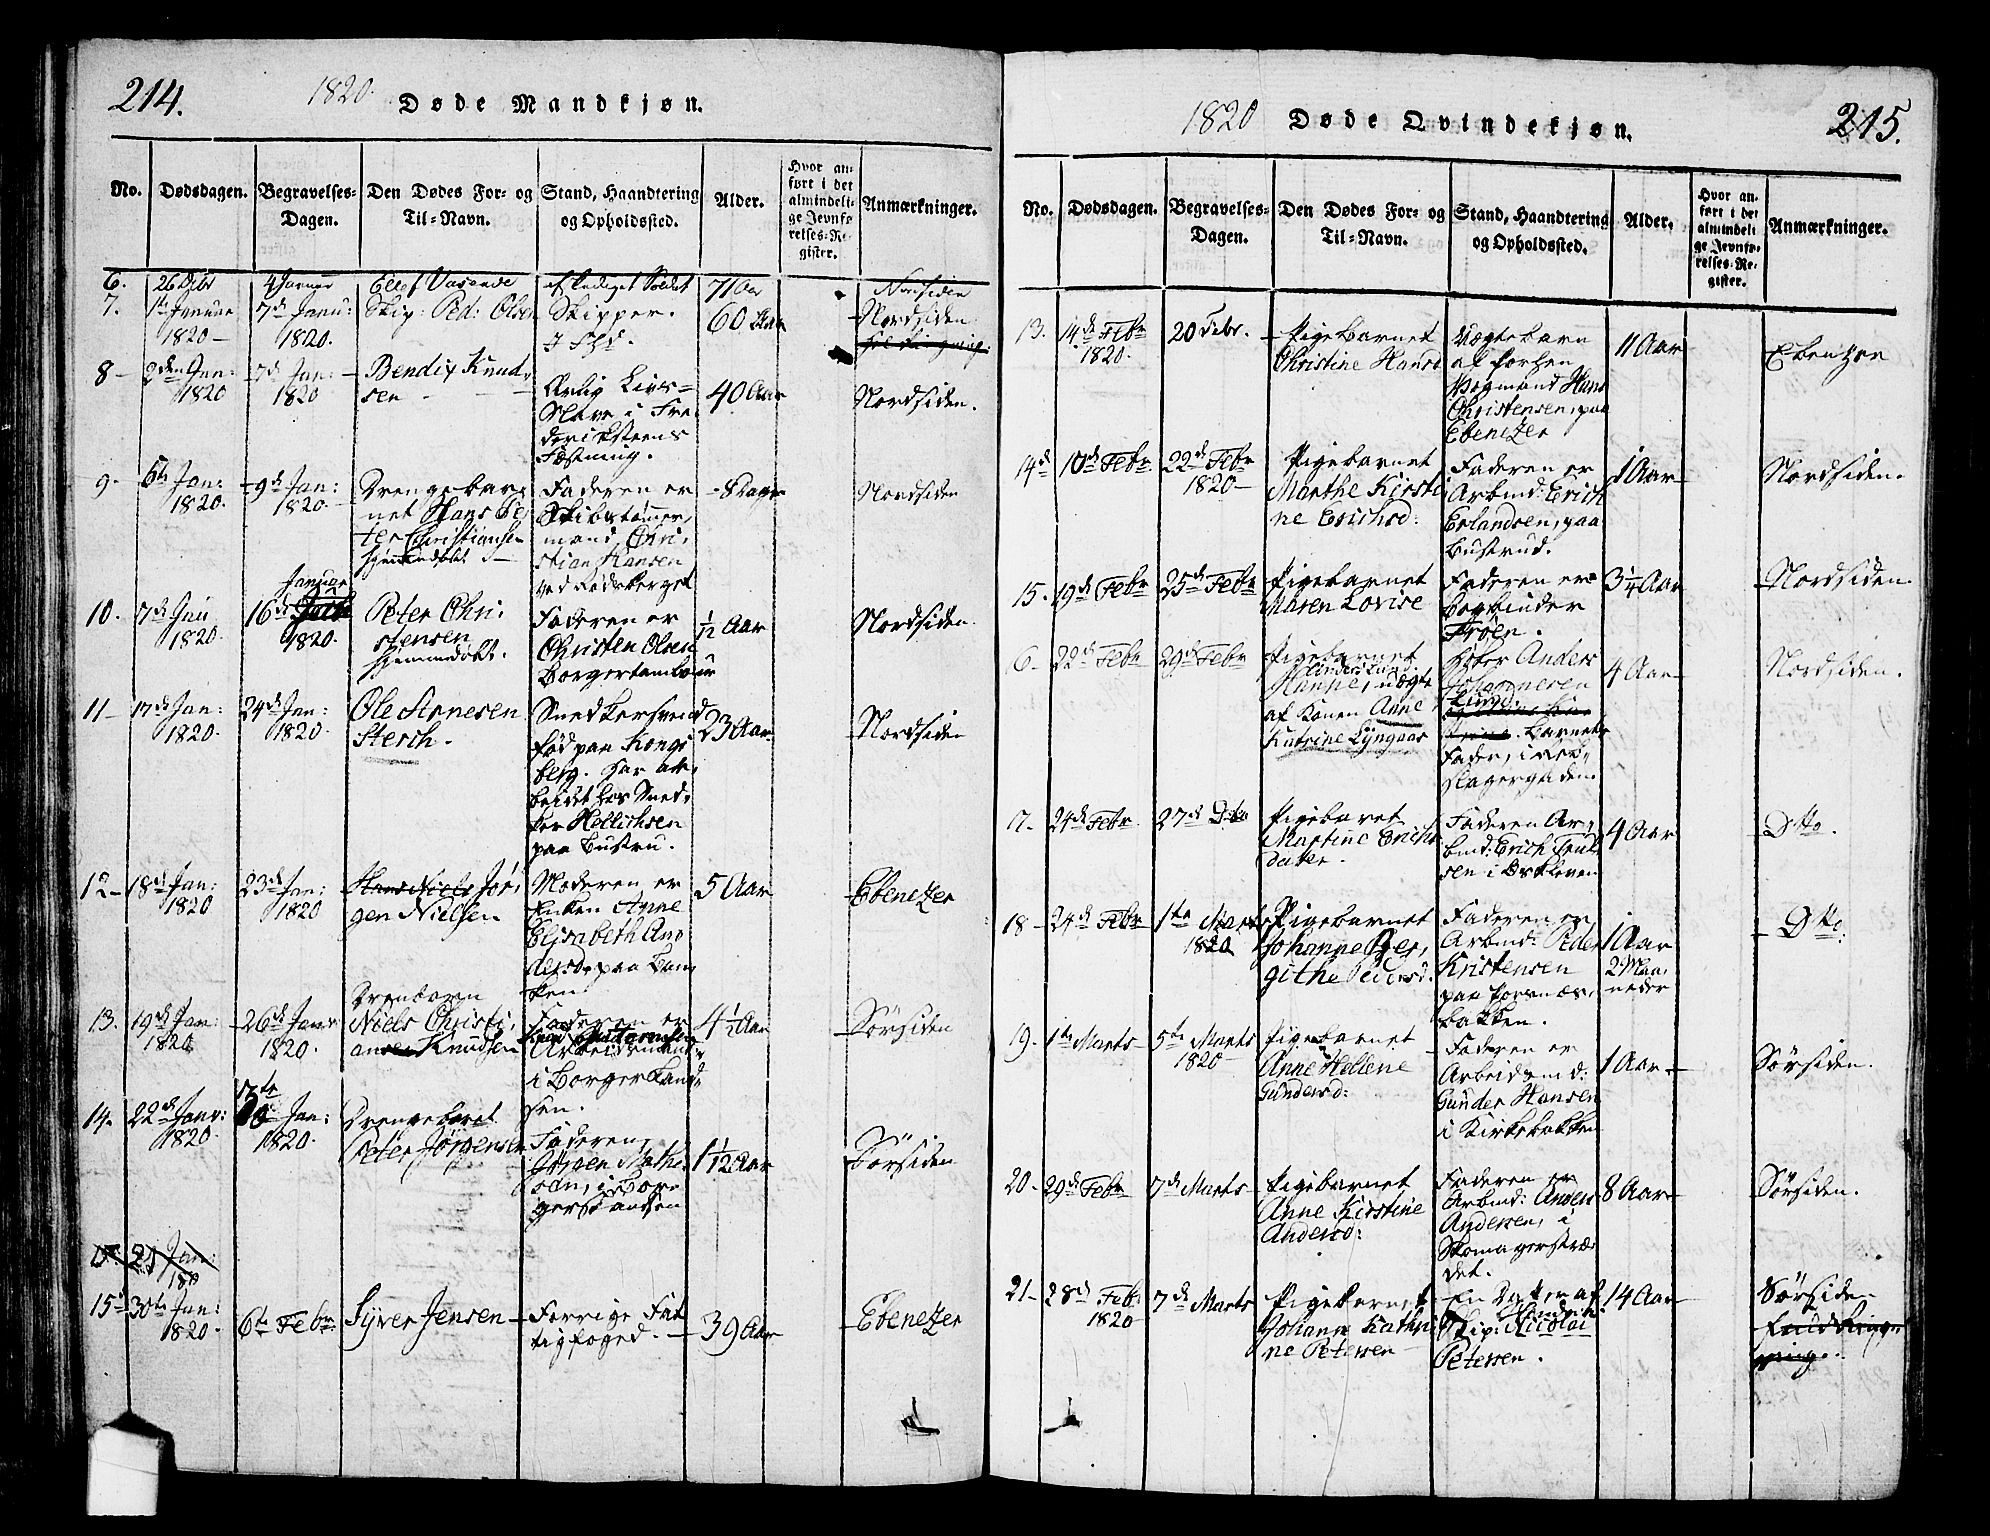 214.
1820.
Døde Mandkjøn.
No.
Dødsdagen.
Begravelses-
Dagen.
Den Dødes For- og
Til-Navn.
Stand, Haandtering
og Opholdssted.
Alder.
Hvor an-
ført i det
almindeli-
ge Jevnfø-
relses-Re-
gister.
Anmærkninger.
6.
26 Dcbr
4 Januar
71 Aar
Nordsiden
7.
1te Januar
1820 —
7de Janu:
1820.
Skip: Ped: Olsen
Skipper.
60 Aar
Nordsiden.
8 —
2den Jan:
1820
7de Jan:
1820
Bendix Knud-
sen
Ærlig Livs=
Slave i Fre-
derichsteens
Fæstning.
40 Aar
Nordsiden.
9.
6te Jan:
1820.
9de Jan:
1820.
Drengebar-
net Hans Pe-
ter Christiansen
hjemmedøbt
Faderen er
Skibstømmer-
mand Chri-
stian Hansen
ved Rødsberget
8 Dage
Nordsiden
10.
7de Jan
1820.
16de Januar
1820.
Peter Chri-
stensen
hjemmedøbt.
Faderen er
Christen Olsen
Borgertambour
1/12 Aar
Nordsiden.
11 —
17de Jan:
1820.
24de Jan:
1820.
Ole Arnesen
Sterch.
Snedkersvend
fød paa Kongs-
berg. har ar-
beidet hos Sned-
ker Hellichsen
paa Bustru.
23 Aar.
Nordsiden
12 —
18de Jan:
1820
23de Jan:
1820
Hans Niels Jør-
gen Nielsen
Moderen er
Enken Anne
Elisabeth And
dersd. paa Ban-
ken
5 Aar
Ebenezer
13.
19de Jan:
1820
26de Janr
1820.
Drenbarn
Niels Christi-
ansen Knudsen
Faderen er
Arbeidsmand
i Borgerskand-
sen.
4 1/2 Aar
Sørsiden
14.
22de Janr:
1820.
17te
Jan:
1820.
Drengebarnet
Peter Jørgensen
Faderen,
Jørgen Mathi-
sen, i Bor-
gerskandsen
1 1/12 Aar
Sørsiden
Jan:
15
30te Jan:
1820.
6te Febr
Syver Jensen
Forrige Fat-
tigfoged.
39 Aar
Ebenezer
1820
Døde Qvindekjøn.
215.
No.
Dødsdagen.
Begravelses-
Dagen.
Den Dødes For- og
Til-Navn.
Stand, Haandtering
og Opholdssted.
Alder.
Hvor an-
ført i det
almindeli-
ge Jevnfø-
relses-Re-
gister.
Anmærkninger.
13.
14de Febr
1820.
20 Febr.
Pigebarnet
Christine Hansd
Vægtebarn
af forhen
Vogmand Hans
Christensen, paa
Ebenezer
11 Aar
Ebenezer
14de
10de Febr
22de Febr
1820 —
Pigebarnet
Marthe Kirsti-
ne Erichsd:
Faderen er
Arbmd: Erich
Erlandsen, paa
Bustrud.
1 Aar
Nordsiden.
15.
19de Febr
25de Febr
Pigebarnet
Maren Lovise
Faderen er
Bogbinder
Frøen.
3 1/4 Aar
Nordsiden.
6 —
22de Febr
29de Febr
Pigebarnet
Hanne, uægte
af Konen Anne
Katrine Lyngaas
Anders
Johannesen
Lund.
Barnets
Fader, i Reb-
slagergaden.
4 Aar
Nordsiden.
7.
24de Febr.
27de Dito
Pigebarnet
Martine Erichs
datter.
Faderen Ar-
bmd: Erich Truls
sen i
4 Aar
Dtto.
18 —
24de Febr
1te Marts
1820
Pigebarnet
Johanne Ber-
githe Pedersd.
Faderen er
Arbmd: Peder
Kristensen
paa
bakken.
1 Aar
2 Maa-
neder
Dtto.
19.
1te Marts
5te Marts
1820
Pigebarnet
Anne Hellene
Gundersd:
Faderen er
Arbeidsmd:
Gunder Hansen
i Kirkebakken
1 Aar
Sørsiden.
20.
29de Febr
7de Marts
Pigebarnet
Anne Kirstine
Andersd:
Faderen er
Arbmd: Anders
Andersen, i
Skomagerstræ-
det.
8 Aar
Sørsiden.
21 —
28de Feb:
1820
7de Marts
Pigebarnet
Johann Kathri-
ne Petersen
En Datter af
Skip: Nicolai
Petersen.
14 Aar
Sørside